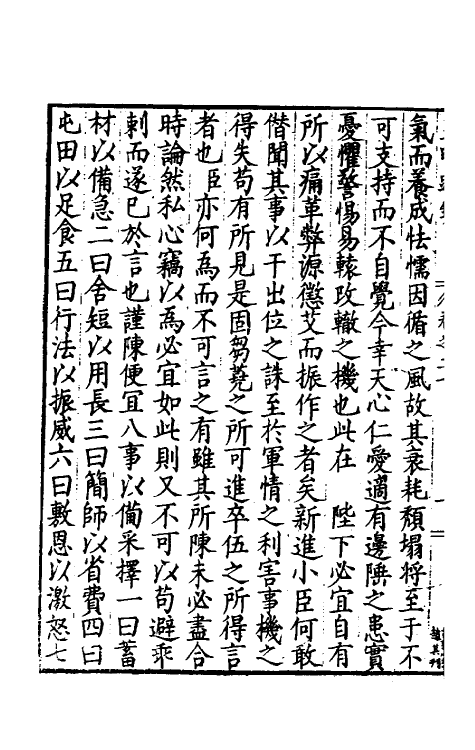 氣而養成怯懦因循之風故其衰耗頹塌將至于不
可支持而不自覺今幸天心仁愛適有邊陲之患實
憂懼警惕易轅攺轍之機也此在　陛下必宜自有
所以痛革弊源懲艾而振作之者矣新進小臣何敢
僭聞其事以干出位之誅至於軍情之利害事機之
得失苟有所見是固芻蕘之所可進卒伍之所得言
者也臣亦何爲而不可言之有雖其所陳未必盡合
時論然私心竊以爲必宜如此則又不可以苟避乖
剌而遂已於言也謹陳便宜八事以備采擇一曰蓄
材以備急二曰舍短以用長三曰簡師以省費四曰
屯田以足食五曰行法以振威六曰敷恩以激怒七